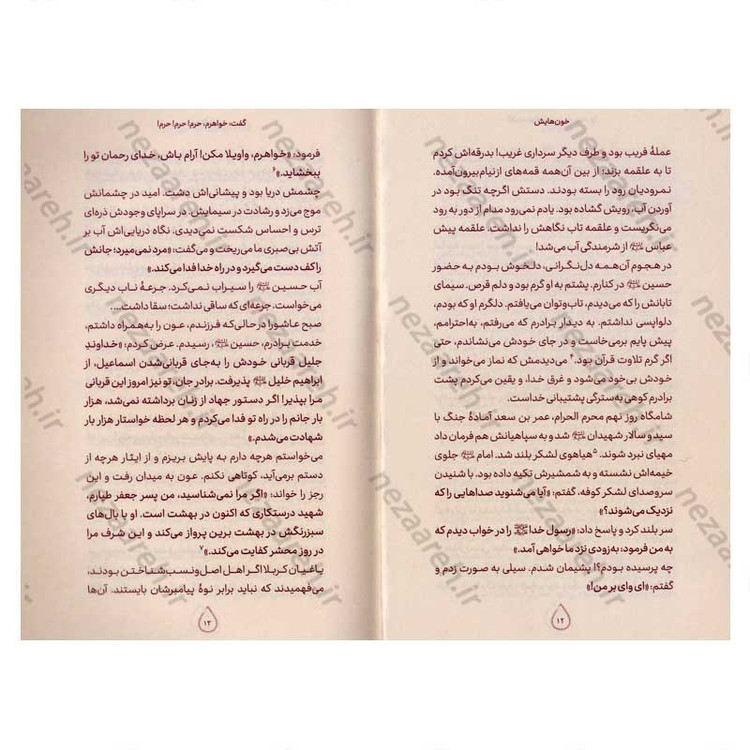 خون‌هایش
عملهٔ فریب بود و طرف دیگر سرداری غریب! بدرقه‌اش کردم
تا به علقمه بزند؛ از بین آن‌همه قمه‌های از نیام بیرون‌آمده.
نمرودیان رود را بسته بودند. دستش اگرچه تنگ بود در
آوردن آب، رویش گشاده بود. یادم نمی‌رود مدام از دور به رود
می‌نگریست و علقمه تاب نگاهش را نداشت. علقمه پیش
عباس ﷺ از شرمندگی آب می‌شد!
در هجوم آن‌همه دل‌نگرانی، دلخوش بودم به حضور
حسین ﷺ در کنارم. پشتم به او گرم بود و دلم قرص. سیمای
تابانش را که می‌دیدم، تاب‌وتوان می‌یافتم. دلگرم او که بودم،
دلواپسی نداشتم. به دیدار برادرم که می‌رفتم، به‌احترامم،
پیش پایم برمی‌خاست و در جای خودش می‌نشاندم، حتی
اگر گرم تلاوت قرآن بود.۴ می‌دیدمش که نماز می‌خواند و از
خودش بی‌خود می‌شود و غرق خدا، و یقین می‌کردم پشت
برادرم کوهی به‌سترگی پشتیبانی خداست.
شامگاه روز نهم محرم الحرام، عمر بن سعد آمادهٔ جنگ با
سید و سالار شهیدان ﷺ شد و به سپاهیانش هم فرمان داد
مهیای نبرد شوند.۵ هیاهوی لشکر بلند شد. امام ﷺ جلوی
خیمه‌اش نشسته و به شمشیرش تکیه داده بود. با شنیدن
سروصدای لشکر کوفه، گفتم: «آیا می‌شنوید صداهایی را که
نزدیک می‌شوند؟»
سر بلند کرد و پاسخ داد: «رسول خدا ﷺ را در خواب دیدم که
به من فرمود: به‌زودی نزد ما خواهی آمد.»
چه پرسیده بودم؟! پشیمان شدم. سیلی به صورت زدم و
گفتم: «ای وای بر من!»
۱۲
گفت: خواهرم، حرم! حرم! حرم!
فرمود: «خواهرم، واویلا مکن! آرام باش، خدای رحمان تو را
ببخشاید.»۶
چشمش دریا بود و پیشانی‌اش دشت. امید در چشمانش
موج می‌زد و رشادت در سیمایش. در سراپای وجودش ذره‌ای
ترس و احساس شکست نمی‌دیدی. نگاه دریایی‌اش آب بر
آتش بی‌صبری ما می‌ریخت و می‌گفت: «مرد نمی‌میرد؛ جانش
را کف دست می‌گیرد و در راه خدا فدا می‌کند.»
آب حسین ﷺ را سیراب نمی‌کرد. جرعهٔ ناب دیگری
می‌خواست. جرعه‌ای که ساقی نداشت؛ سقا داشت....
صبح عاشورا در حالی‌که فرزندم، عون را به‌همراه داشتم،
خدمت برادرم، حسین ﷺ، رسیدم. عرض کردم: «خداوندِ
جلیل قربانی خودش را به‌جای قربانی‌شدن اسماعیل، از
ابراهیم خلیل ﷺ پذیرفت. برادر جان، تو نیز امروز این قربانی
مرا بپذیر! اگر دستور جهاد از زنان برداشته نمی‌شد، هزار
بار جانم را در راه تو فدا می‌کردم و هر لحظه خواستار هزار بار
شهادت می‌شدم.»
می‌خواستم هرچه دارم به پایش بریزم و از ایثار هرچه از
دستم برمی‌آید، کوتاهی نکنم. عون به میدان رفت و این
رجز را خواند: «اگر مرا نمی‌شناسید، من پسر جعفر طیارم،
شهید درستکاری که اکنون در بهشت است. او با بال‌های
سبزرنگش در بهشت برین پرواز می‌کند و این شرف مرا
در روز محشر کفایت می‌کند.»۷
یاغیان کربلا اگر اهل اصل‌ونسب‌شناختن بودند،
می‌فهمیدند که نباید برابر نوهٔ پیامبرشان بایستند. آن‌ها
۱۳
nezaareh.ir